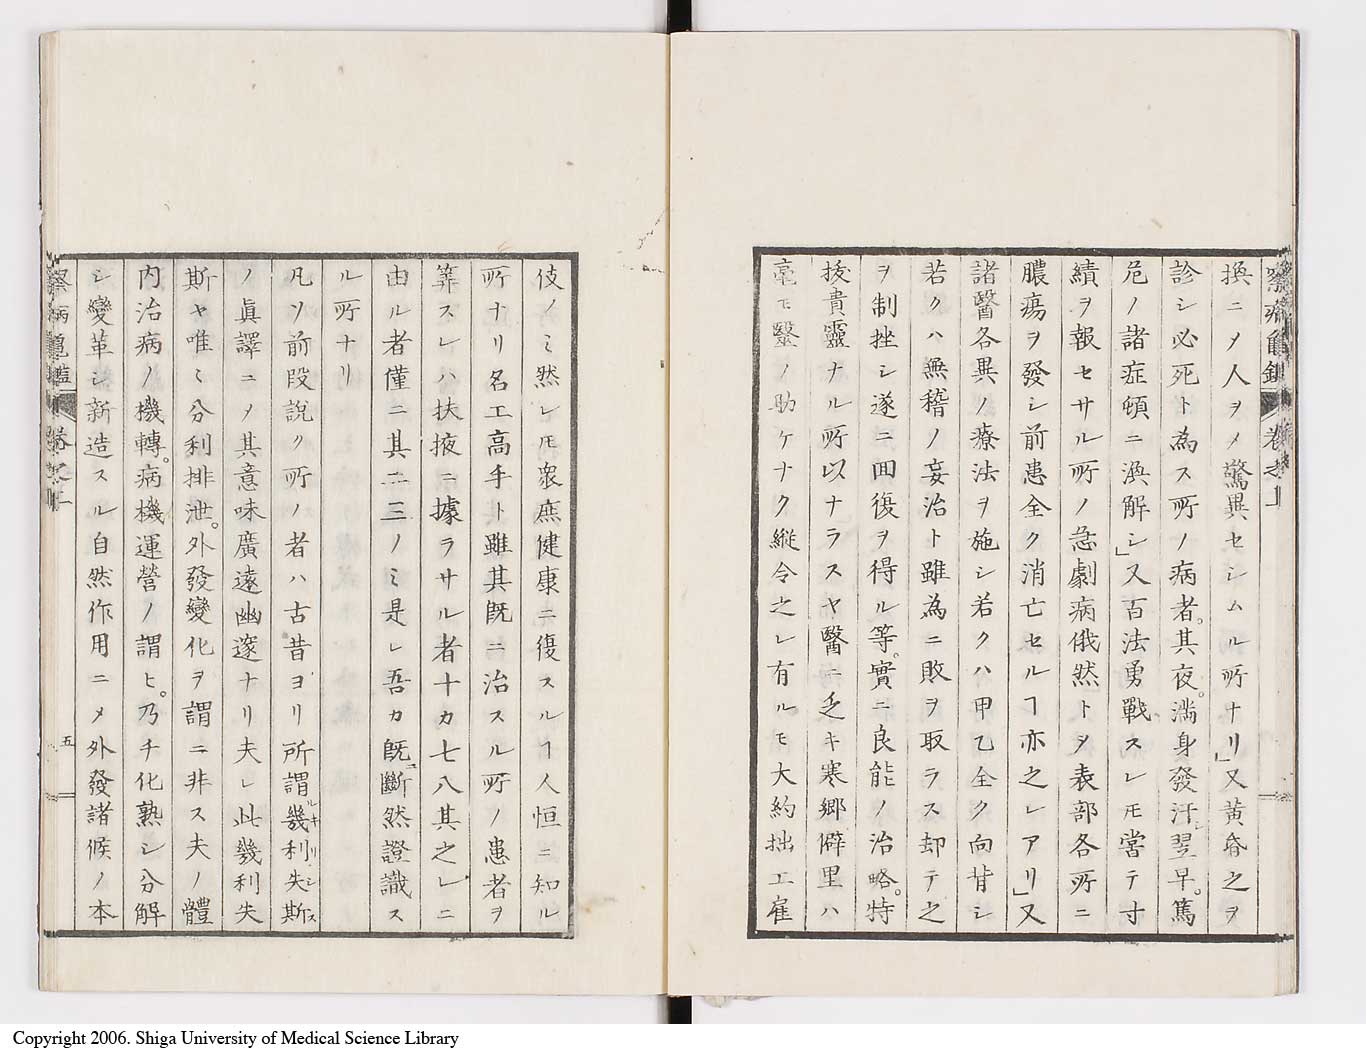 換ニメ人ヲメ驚異セシムル所ナリ」又黄昏之ヲ
診シ必死ト為ス所ノ病者。其夜。満身發汗シ翌早。篤
危ノ諸症頓ニ渙解シ」又百法勇戰スレモ嘗テ寸
績ヲ報セサル所ノ急劇病俄然」トヲ表部各所ニ
膿瘍ヲ發シ前患全ク消亡セルヿ亦之レアリ」又
諸醫各異ノ療法ヲ施シ若クハ甲乙全ク向背シ
若クハ無稽ノ妄治ト雖為ニ敗ヲ取ラス却テ之
ヲ制挫シ遂ニ回復ヲ得ル等。實ニ良能ノ治略。特
抜貴靈ナル所以ナラスヤ醫ニ乏キ寒郷僻里ハ
毫モ醫ノ助ケナク縦令之レ有ルモ大約拙工雇
伎ノミ然レモ衆庶健康ニ復スルヿ人恒ニ知ル
所ナリ名工高手ト雖其既ニ治スル所ノ患者ヲ
算スレハ扶掖ニ據ラサル者十カ七八其之レニ
由ル者僅ニ其二三ノミ是レ吾カ既ニ斷然證識ス
ル所ナリ
凡ソ前段説ク所ノ者ハ古昔ヨリ所謂幾利失斯
ノ眞譯ニメ其意味廣遠幽邃ナリ夫レ此幾利失
斯ヤ唯ミ分利排泄。外發變化ヲ謂ニ非ス夫ノ體
内治病ノ機轉。病機運營ノ謂ヒ。乃チ化熟シ分解
シ變革シ新造スル自然作用ニメ外發諸候ノ本
察病亀鑑 巻之上
五